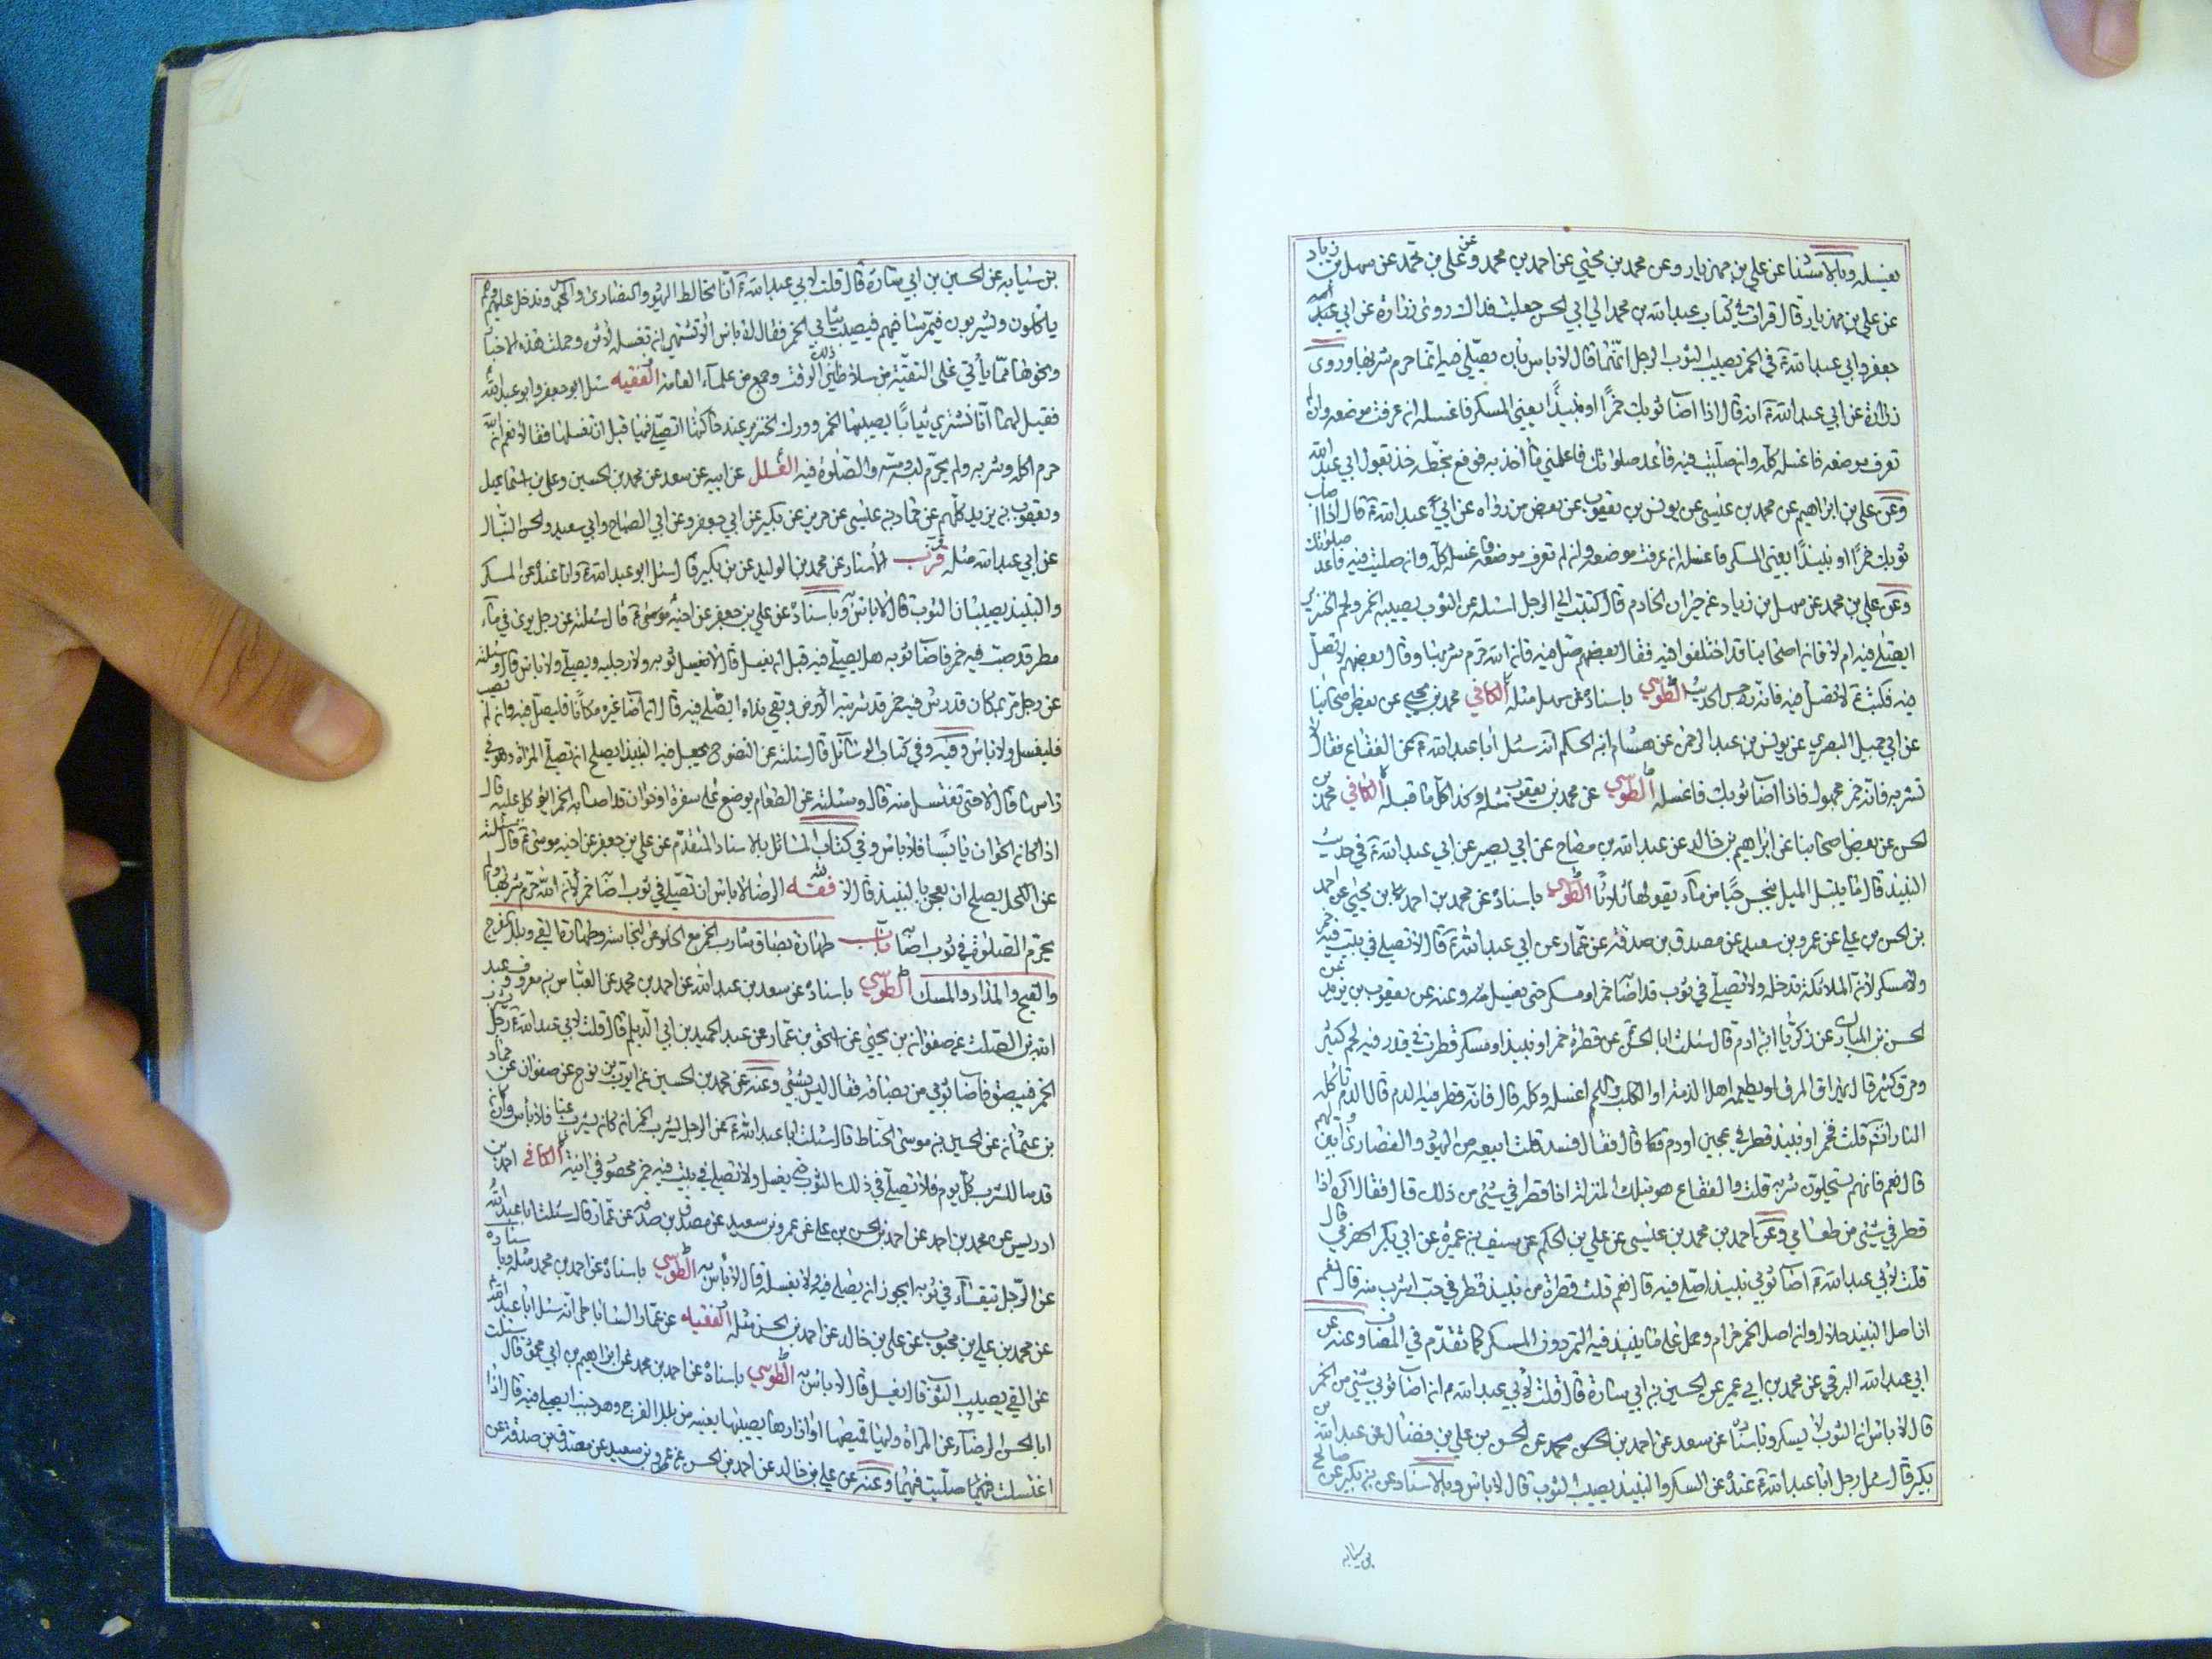 يغسله وبالاسناد عن علي بن مهزيار وعن محمد بن يحيى عن احمد بن محمد وعن علي بن محمد عن سهل بن زياد
عن علي بن مهزيار قال قرات في كتاب عبد الله بن محمد الى ابي الحسن جعلت فداك روى زرارة عن ابي
جعفر وابي عبد الله ع في الخمر يصيب الثوب الرجل انهما قال لا باس بان يصلي فيه انما حرم شربها وروى
زرارة عن ابي عبد الله ع انه قال اذا اصاب ثوبك خمرا او نبيذا يعني المسكر فاغسله ان عرفت موضعه وان لم
تعرف موضعه فاغسله كله وان صليت فيه فاعد صلوتك فاعلمني ما اخذ به فوقع بخطه خذ بقول ابي عبد الله
وعن علي بن ابراهيم عن محمد بن عيسى عن يونس بن يعقوب عن بعض من رواه عن ابي عبد الله ع قال اذا اصاب
ثوبك خمرا او نبيذا يعني المسكر فاغسله ان عرفت موضعه وان لم تعرف موضعه فاغسله كله وان صليت فيه فاعد صلوتك
وعن علي بن محمد عن سهل بن زياد عن خيران الخادم قال كتبت الى الرجل اسئله عن الثوب يصيبه الخمر ولحم الخنزير
ايصلى فيه ام لا فان اصحابنا قد اختلفوا فيه فقال بعضهم صل فيه فان الله حرم شربها وقال بعضهم لا تصل
فيه فكتب ع لا تصل فيه فانه رجس الحديث الطوسي باسناده عن سهل مثله الكافي محمد بن يحيى عن بعض اصحابنا
عن ابي جميل البصري عن يونس بن عبد الرحمن عن هشام ابن الحكم انه سئل ابا عبد الله ع عن الفقاع فقال لا
تشربه فانه خمر مجهول فاذا اصاب ثوبك فاغسله الطوسي عن محمد بن يعقوب مثله وكذا كل ما قبله الكافي محمد بن
الحسن عن بعض اصحابنا عن ابراهيم بن خالد عن عبد الله بن وضاح عن ابي بصير عن ابي عبد الله ع في حديث
النبيذ قال ما يبل الميل ينجس حبا من ماء يقولها ثلاثا الطوسي باسناده عن محمد بن احمد بن يحيى عن احمد
بن الحسن بن علي عن عمرو بن سعيد عن مصدق بن صدقة عن عمار عن ابي عبد الله ع قال لا تصلي في بيت فيه خمر
ولا مسكر لان الملائكة لا تدخله ولا تصل في ثوب قد اصابه خمر او مسكر حتى يغسل منه وعنه عن يعقوب بن يزيد عن
الحسن بن المبارك عن زكريا ابن ادم قال سئلت ابا الحسن ع عن قطرة خمر او نبيذ او مسكر قطرت في قدر فيه لحم كثير
ومرق كثير قال يهراق المرق او يطعمه اهل الذمة او الكلاب واللحم اغسله وكله قال فانه قطر فيه الدم قال الدم تاكله
النار انش قلت فخمر او نبيذ قطر في عجين او دم قال فقال فسد قلت ابيعه من اليهود والنصارى وابين لهم
قال نعم فانهم يستحلون شربه قلت والفقاع هو بتلك المنزلة اذا قطر في شيئ من ذلك قال فقال اكره اذا
قطر في شيئ من طعامي وعن احمد بن محمد بن عيسى عن علي بن الحكم عن سيف بن عميرة عن ابي بكر الحضرمي قال
قلت لابي عبد الله ع اصاب ثوبي نبيذ اصلي فيه قال نعم قلت قطرة من نبيذ قطر في حب اشرب منه قال نعم
ان اصل النبيذ حلال وان اصل الخمر حرام وحمل على ما ينبذ فيه التمر دون المسكر كما تقدم في المضاف وعنه عن
ابي عبد الله البرقي عن محمد بن ابي عمير عن الحسين بن ابي سارة قال قلت لابي عبد الله ع ان اصاب ثوبي شيئ من الخمر
قال لا باس ان الثوب لا يسكر وباسناده عن سعد عن احمد بن الحسن محمد عن الحسن بن علي بن فضال عن عبد الله بن
بكير قال سئل رجل ابا عبد الله ع عنده عن المسكر والنبيذ يصيب الثوب قال لا باس وبالاسناد عن بن بكير عن صالح
بن سيابه
بن سيابه عن الحسين بن ابي سارة قال قلت لابي عبد الله ع انا نخالط اليهود والنصارى والمجوس وندخل عليهم وهم
ياكلون ويشربون فيمر ساقيهم فيصب ثيابي الخمر فقال لا باس الا ان تشتهي ان تغسله لاثره وحملت هذه الاخبار
ونحوها مما ياتي على التقية من سلاطين ذلك الوقت وجمع من علماء العامة الفقيه سئل ابو جعفر وابو عبد الله
فقيل لهما انا نشتري ثيابا يصيبها الخمر وودك الخنزير عند حاكتها انصلي فيها قبل ان نغسلها فقالا نعم ان الله
حرم اكله وشربه ولم يحرم لبسه ومسه والصلوة فيه العلل عن ابيه عن سعد عن محمد بن الحسين وعلي بن اسماعيل
ويعقوب بن يزيد كلهم عن حماد بن عيسى عن حريز عن بكير عن ابي جعفر وعن ابي الصباح وابي سعيد والحسن النبال
عن ابي عبد الله مثله قرب الاسناد عن محمد بن الوليد عن بن بكير قال سئل ابو عبد الله ع وانا عنده عن المسكر
والنبيذ يصيبان الثوب قال لا باس وباسناده عن علي بن جعفر عن اخيه موسى ع قال سئلته عن رجل يرى في ماء
مطر قد صب فيه خمر فاصاب ثوبه هل يصلي فيه قبل ان يغسل قال لا يغسل ثوبه ولا رجليه ويصلي ولا باس قال وسئلته
عن رجل مر بمكان قد رش فيه خمر قد شربته الارض وبقي نداه ايصلي فيه قال ان اصاب غيره مكانا فليصل فيه وان لم يصب
فليصل ولا باس وفيه وفي كتاب الوسائل قال سئلته عن النضوح يجعل فيه النبيذ ايصلح ان تصلي المراة وهو في
راسها قال لا حتى تغتسل منه قال وسئلته عن الطعام يوضع على سفرة او خوان قد اصابه الخمر ايوكل عليه قال
اذا كان الخوان يابسا فلا باس وفي كتاب المسائل بالاسناد المتقدم عن علي بن جعفر عن اخيه موسى ع قال سئلته
عن الكحل يصلح ان يعجن بالنبيذ قال لا فقه الرضا لا باس ان تصلي في ثوب اصابه خمر لان الله حرم شربها ولم
يحرم الصلوة في ثوب اصابه باب طهارة بصاق شارب الخمر مع الخلو عن النجاسة وطهارة القي وبلل الفرج
والقيح والمداد والمسك الطوسي باسناده عن سعد بن عبد الله عن احمد بن محمد عن العباس بن معروف وعبد
الله بن الصلت عن صفوان بن يحيى عن اسحق بن عمار عن عبد الحميد بن ابي الديلم قال قلت لابي عبد الله ع رجل يشرب
الخمر فيبصق فاصاب ثوبي من بصاقه فقال ليس بشيئ وعنه عن محمد بن الحسين عن ايوب بن نوح عن صفوان عن حماد
بن عثمان عن الحسين بن موسى الحناط قال سئلت ابا عبد الله ع عن الرجل يشرب الخمر
قد مسا للشرب كل يوم فلا تصلي في ذلك الثوب حتى يغسل ولا تصلي في بيت فيه خمر محصور في انية الكافي احمد بن
ادريس عن محمد بن احمد عن احمد بن الحسن بن علي عن عمرو بن سعيد عن مصدق بن صدقة عن عمار قال سئلت ابا عبد الله
عن الرجل تيقياء في ثوبه ايجوز ان يصلي فيه ولا يغسله قال لا باس به الطوسي باسناده عن احمد بن محمد مثله وباسناده
عن محمد بن علي بن محبوب عن علي بن خالد عن احمد بن الحسن مثله الفقيه عن عمار الساباطي انه سئل ابا عبد الله
عن القي يصيب الثوب قال يغسل قال لا باس به الطوسي باسناده عن احمد بن محمد عن ابراهيم بن ابي محمود قال سئلت
ابا الحسن الرضا ع عن المراة وليها قميصها او ازارها يصيبها يعنيه من بلل الفرج وهو جنب ايصلي فيه قال اذا
اغتسلت صليت فيهما وعنه عن علي بن خالد عن احمد بن الحسن عن عمرو بن سعيد عن مصدق بن صدقة عن